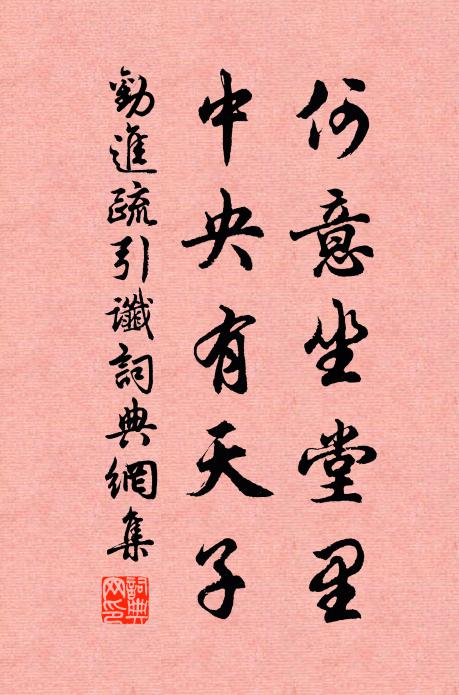 何意坐堂里
中央有天子
勸進疏引讖詞典網集